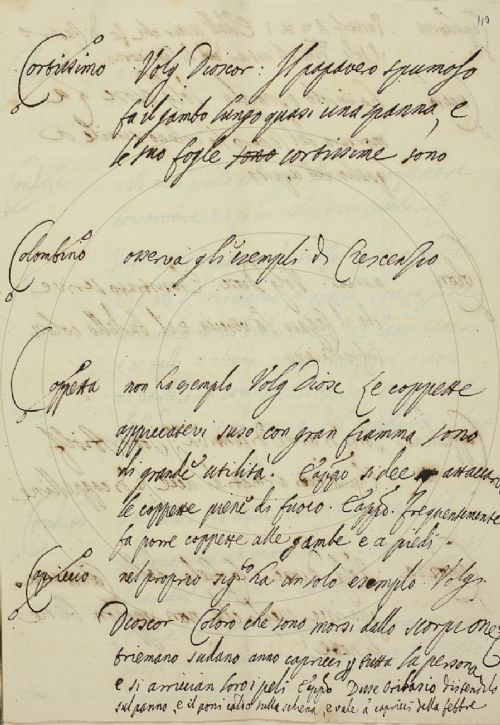 110
Cortissimo Volg Dioscor: Il papavero spumoso
fa il gambo lungo quasi una spanna, e
le sue foglie sono cortissime sono
Colombino osserva gli esempli di Crescenzio
Coppetta non ha esemplo Volg Diosc Le coppette
appiccatevi suso con gran fiamma sono
di grande utilità. si dee attaccar
le coppette piene di fuoco. frequentemente
fa porre coppette alle gambe e a piedi.
Capriccio nel proprio sig.º ha un solo esemplo Volg.
Dioscor Coloro che sono morsi dallo scorpione
triemano sudano anno capricci tutta la persona
e si arriccian loro i peli Disse Oribasio distendilo
sul panno, e il poni caldo sulla schiena, e vale a capricci della febbre